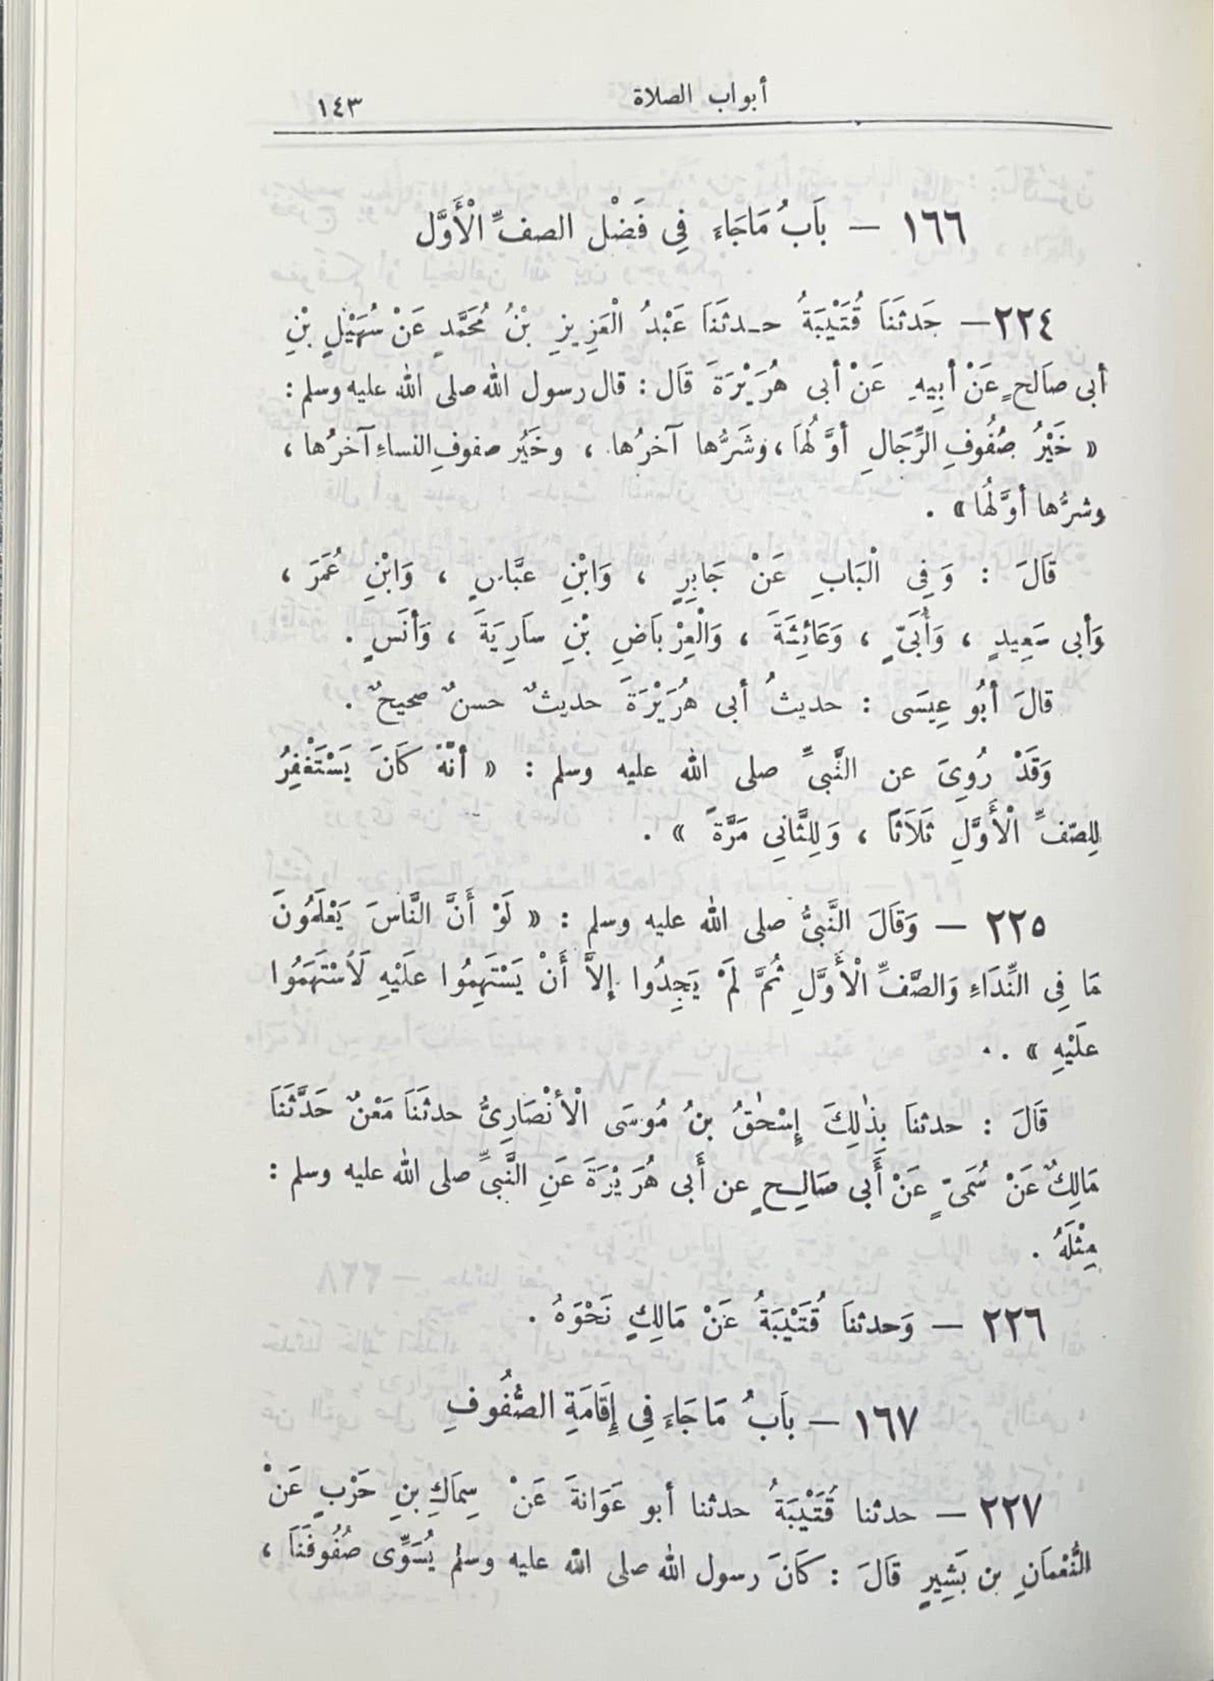 أبواب الصلاة ١٤٣
١٦٦ — بَابُ مَاجَاءَ فِى فَضْلِ الصفِّ الْأَوَّلِ
٢٢٤ — حَدثَنَا قُتَيْبَةُ حدثَنَا عَبْدُ الْعَزِيزِ بْنُ مُحَمَّدٍ عَنْ سُهَيْلِ بْنِ
أبى صَالحٍ عَنْ أبِيهِ عَنْ أبى هُرَيْرَةَ قَال : قال رسول الله صلى الله عليه وسلم :
« خَيْرُ صُفُوفِ الرِّجَالِ أوَّلُهاَ ، وشَرُّها آخرُها ، وخَيْرُ صفوفِ النساءِ آخرُها ،
وشرُّها أوَّلُهَا » .
قَالَ : وَفِى الْبَابِ عَنْ جَابِرٍ ، وَابْنِ عبَّاسٍ ، وَابْنِ عُمَرَ ،
وَأبى سَعِيدٍ ، وَأُبَىٍّ ، وَعَائِشَةَ ، وَالْعِرْبَاضِ بْنِ سَارِيَةَ ، وَأنَسٍ .
قالَ أبُو عِيسَى : حديثُ أبى هُرَيْرَةَ حديثٌ حسنٌ صحيحٌ .
وَقَدْ رُوِىَ عن النَّبىِّ صلى الله عليه وسلم : « أنَّهُ كَانَ يَسْتَغْفِرُ
لِلصّفِّ الْأَوَّلِ ثَلَاثاً ، وَلِلثَّانِى مَرَّةً » .
٢٢٥ — وَقَالَ النَّبىُّ صلى الله عليه وسلم : « لَوْ أَنَّ النَّاسَ يَعْلَمُونَ
مَا فِى النِّدَاءِ وَالصَّفِّ الْأَوَّلِ ثُمَّ لَمْ يَجِدُوا إلاَّ أَنْ يَسْتَهِمُوا علَيْهِ لَاسْتَهَمُوا
عَلَيْهِ » .
قَالَ : حدثنا بِذٰلِكَ إِسْحٰقُ بنُ مُوسَى الْأنْصَارِىُّ حدثَنَا مَعْنٌ حَدَّثَنَا
مَالِكٌ عَنْ سُمَىٍّ عَنْ أَبى صَالِحٍ عن أَبى هُرَيْرَةَ عَنِ النَّبىِّ صلى الله عليه وسلم :
مِثْلَهُ .
٢٢٦ — وَحدثنَا قُتَيْبَةُ عَنْ مَالِكٍ نَحْوَهُ .
١٦٧ — بَابُ مَا جَاءَ فِى إِقَامَةِ الصُّفُوفِ
٢٢٧ — حدثنا قُتَيْبَةُ حدثنا أبو عَوَانةَ عَنْ سِمَاكِ بنِ حَرْبٍ عَنْ
النُّعْمَانِ بن بَشِيرٍ قَالَ : كَانَ رسول الله صلى الله عليه وسلم يُسَوِّى صُفُوفَنَا ،